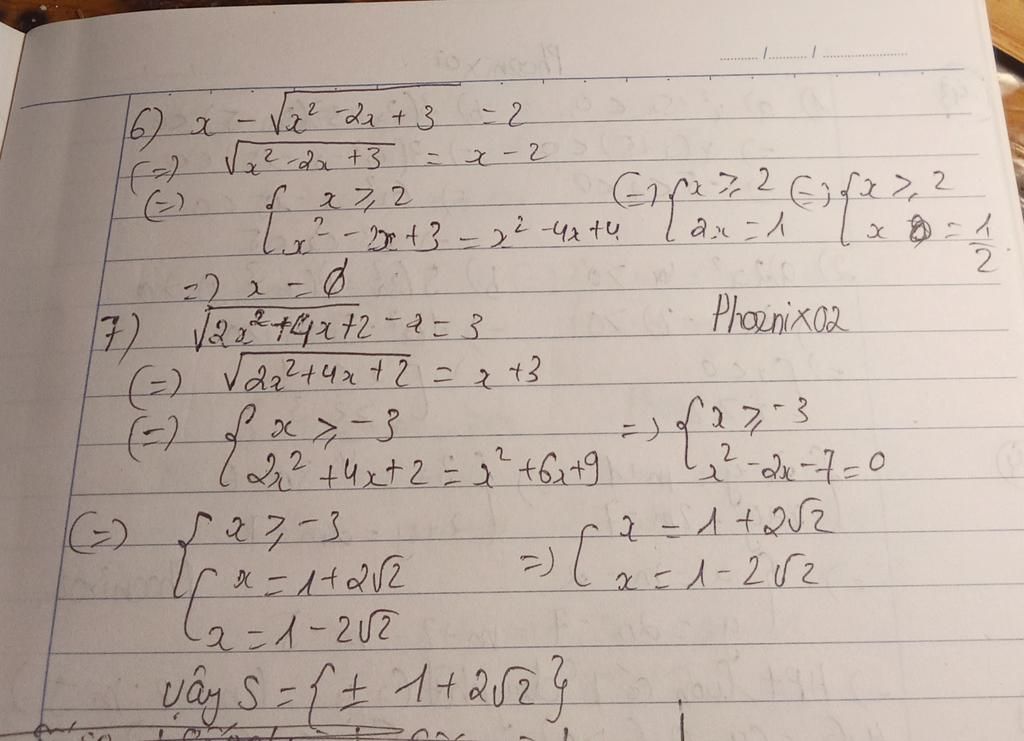 6) x - √(x² - 2x + 3) = 2
(=) √(x² - 2x + 3) = x - 2
(=) { x ≥ 2 (=) { x ≥ 2 (=) { x ≥ 2
x² - 2x + 3 = x² - 4x + 4 2x = 1 x = 1/2
=) x = ∅
7) √(2x² + 4x + 2) - x = 3 Phoenix02
(=) √(2x² + 4x + 2) = x + 3
(=) { x ≥ -3 =) { x ≥ -3
2x² + 4x + 2 = x² + 6x + 9 x² - 2x - 7 = 0
(=) { x ≥ -3 =) [ x = 1 + 2√2
[ x = 1 + 2√2 x = 1 - 2√2
x = 1 - 2√2
vậy S = {± 1 + 2√2}